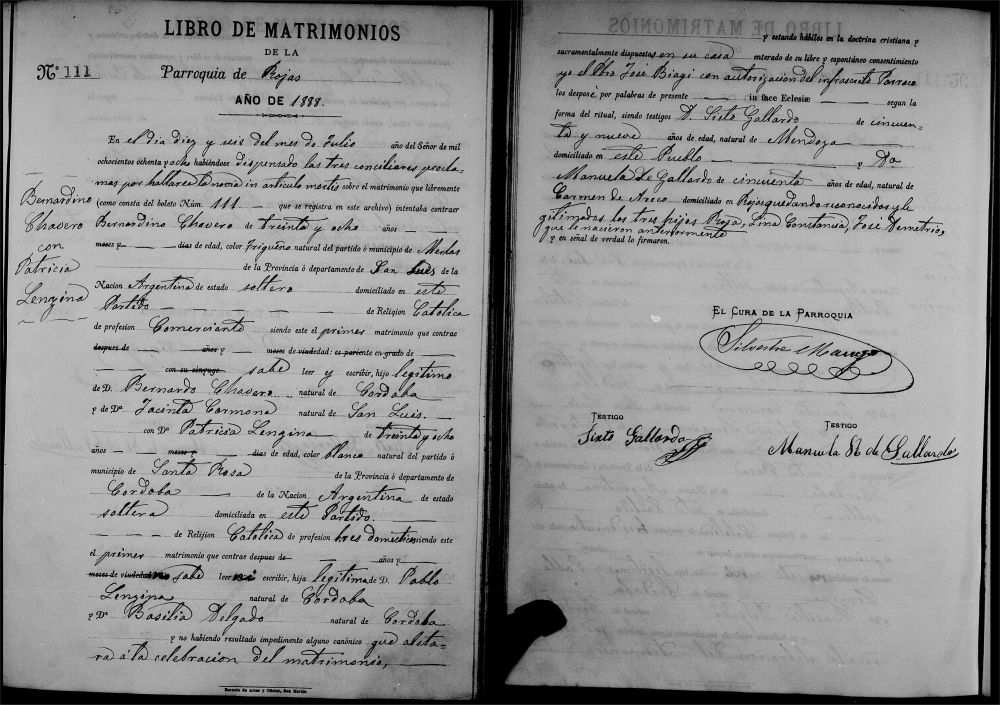 LIBRO DE MATRIMONIOS
DE LA
Nº 111 Parroquia de Rojas
AÑO DE 1888.
En el dia diez y seis del mes de Julio año del Señor de mil
ochocientos ochenta y ocho habiéndose dispensado las tres conciliares procla-
mas por hallarse la novia in artículo mortis sobre el matrimonio que libremente
(como consta del boleto Núm. 111. — que se registra en este archivo) intentaba contraer
Bernardino Chavero de treinta y ocho años —
meses y — dias de edad, color trigueño natural del partido ó municipio de Merlos
de la Provincia ó departamento de San Luis de la
Nacion Argentina de estado soltero domiciliado en este
Partido — de Religion Católica
de profesion Comerciante siendo este el primer matrimonio que contrae
despues de — años y — meses de viudedad: es pariente en grado de —
— con su cónyuge — sabe leer y escribir, hijo legítimo
de D. Bernardo Chavero natural de Cordoba
y de Dª Jacinta Carmona natural de San Luis.
con Dª Patricia Lenzina de treinta y ocho
años — meses y — dias de edad, color blanco natural del partido ó
municipio de Santa Rosa de la Provincia ó departamento de
Cordoba — de la Nacion Argentina de estado
soltera domiciliada en este Partido.
— de Relijion Católica de profesion qres domestics siendo este
el primer matrimonio que contrae despues de — años y —
meses de viudedad no sabe leer ni escribir, hija legítima de D. Pablo
Lenzina natural de Cordoba
y Dª Basilia Delgado natural de Cordoba
y no habiendo resultado impedimento alguno canónico que obsta-
ra á la celebracion del matrimonio,
Bernardino
Chavero
con
Patricia
Lenzina
Escuela de Artes y Oficios, San Martin
y estando hábiles en la doctrina cristiana y
sacramentalmente dispuestos en su casa enterado de su libre y espontáneo consentimiento
yo el Pbro José Biagi con autorización del infrascrito Parroco
los desposé por palabras de presente — in face Eclesiæ — segun la
forma del ritual, siendo testigos D. Sisto Gallardo de cincuen-
ta y nueve años de edad, natural de Mendoza
domiciliado en este Pueblo y Da
Manuela De Gallardo de cincuenta años de edad, natural de
Carmen de Areco domiciliado en Rojas quedando reconocidos y le
gitimados los tres hijos Rosa, Lina Constancia, José Demetrio,
que le nacieron anteriormente
y en señal de verdad lo firmaron.
EL CURA DE LA PARROQUIA
Silvestre
TESTIGO
Sixto Gallardo
TESTIGO
Manuela de Gallardo